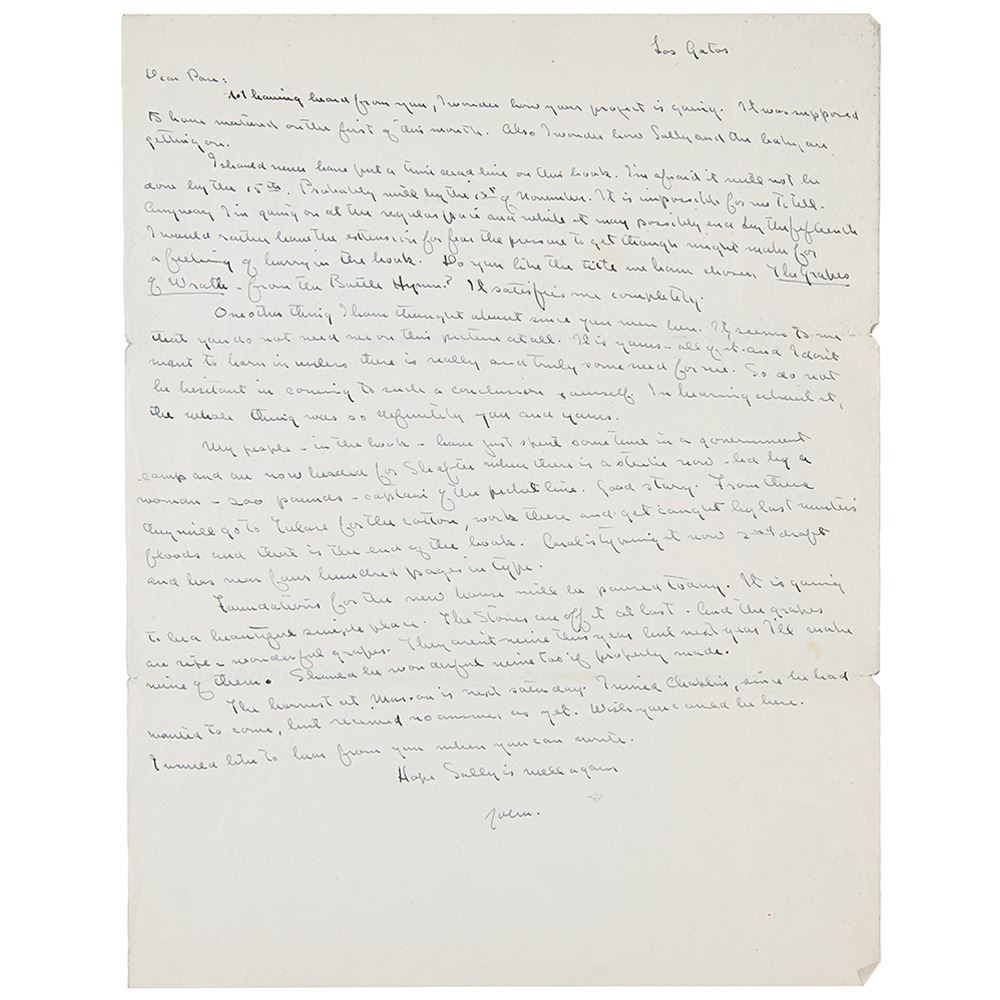 Los Gatos
Dear Pare:
Not having heard from you, I wonder how your project is going. It was supposed
to have matured on the first of this month. Also I wonder how Sally and the baby are
getting on.
I should never have put a time dead line on this book. I'm afraid it will not be
done by the 15th. Probably will by the 1st of November. It is impossible for me to tell.
Anyway I'm going on at the regular pace and while it may possibly end by the fifteenth
I would rather have the extension for fear the pressure to get through might make for
a feeling of hurry in the book. Do you like the title we have chosen The Grapes
of Wrath - from the Battle Hymn? It satisfies me completely.
One other thing I have thought about since you were here. It seems to me
that you do not need me on this picture at all. It is yours - all of it and I don't
want to horn in unless there is really and truly some need for me. So do not
be hesitant in coming to such a conclusion yourself. In hearing about it,
the whole thing was so definitely you and yours.
My people - in the book - have just spent some time in a government
camp and are now headed for Shafter where there is a strike now - led by a
woman - 200 pounds - captain of the picket line. Good story. From there
they will go to Tulare for the cotton, work there and get caught by last winter's
floods and that is the end of the book. Carol is typing it now 2nd draft
and has near four hundred pages in type.
Foundations for the new house will be poured today. It is going
to be a beautiful simple place. The Stones are off it at last. And the grapes
are ripe - wonderful grapes. They aren't mine this year but next year I'll make
wine of them. Should be wonderful wine too if properly made.
The harvest at Masson is next saturday. I wired Chaplin, since he had
wanted to come, but received no answer, as yet. Wish you could be here.
I would like to hear from you when you can write.
Hope Sally is well again
John.